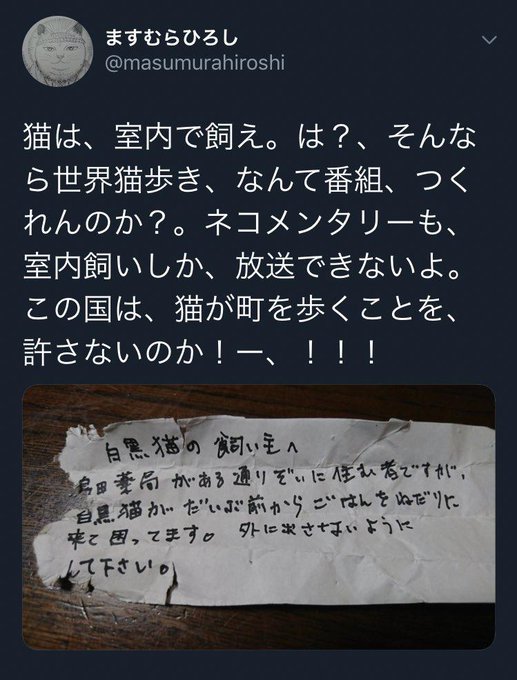 ますむらひろし
@masumurahiroshi
猫は、室内で飼え。は？、そんな
ら世界猫歩き、なんて番組、つく
れんのか？。ネコメンタリーも、
室内飼いしか、放送できないよ。
この国は、猫が町を歩くことを、
許さないのか！ー、！！！
白黒猫の飼い主へ
島田薬局がある通りぞいに住む者ですが、
白黒猫がだいぶ前からごはんをねだりに
来て困ってます。外に出させないように
して下さい。